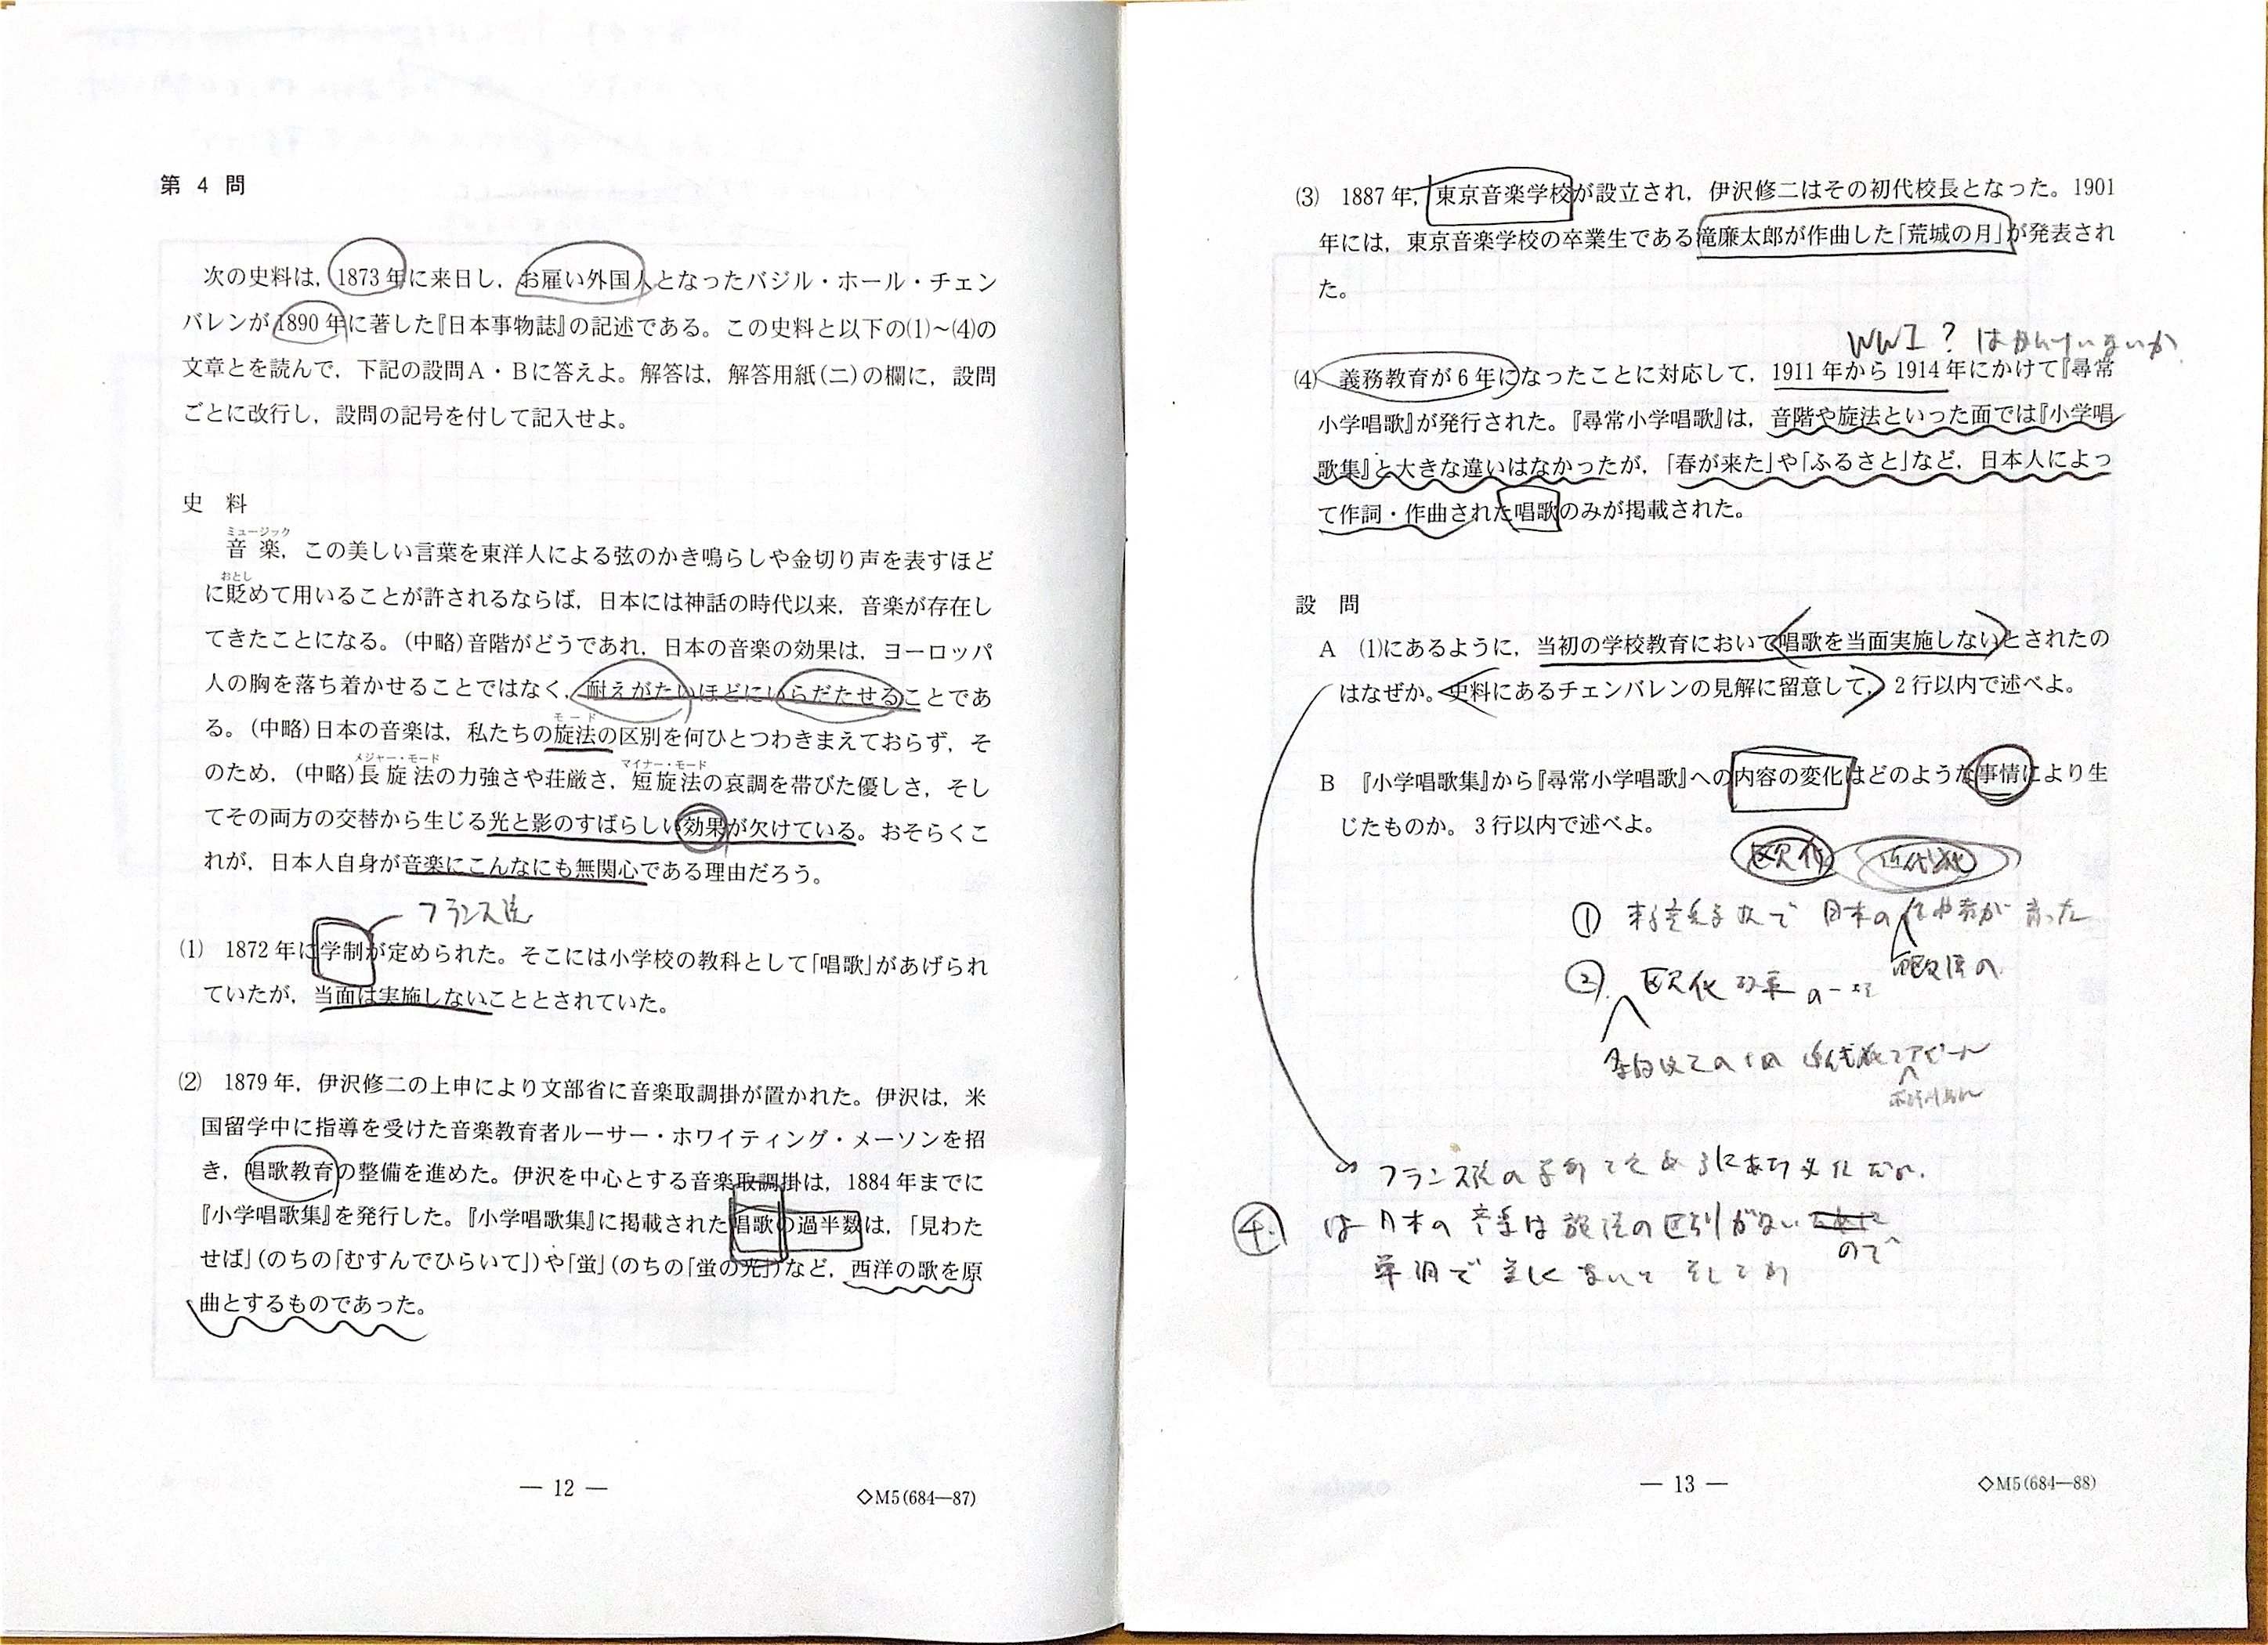 第 4 問
次の史料は，1873 年に来日し，お雇い外国人となったバジル・ホール・チェン
バレンが 1890 年に著した『日本事物誌』の記述である。この史料と以下の(1)～(4)の
文章とを読んで，下記の設問A・Bに答えよ。解答は，解答用紙(ニ)の欄に，設問
ごとに改行し，設問の記号を付して記入せよ。
史 料
ミュージック
音 楽，この美しい言葉を東洋人による弦のかき鳴らしや金切り声を表すほど
おとし
に貶めて用いることが許されるならば，日本には神話の時代以来，音楽が存在し
てきたことになる。(中略)音階がどうであれ，日本の音楽の効果は，ヨーロッパ
人の胸を落ち着かせることではなく，耐えがたいほどにいらだたせることであ
モード
る。(中略)日本の音楽は，私たちの旋法の区別を何ひとつわきまえておらず，そ
メジャー・モード マイナー・モード
のため，(中略)長旋法の力強さや荘厳さ，短旋法の哀調を帯びた優しさ，そし
てその両方の交替から生じる光と影のすばらしい効果が欠けている。おそらくこ
れが，日本人自身が音楽にこんなにも無関心である理由だろう。
フランス法
(1) 1872 年に学制が定められた。そこには小学校の教科として「唱歌」があげられ
ていたが，当面は実施しないこととされていた。
(2) 1879 年，伊沢修二の上申により文部省に音楽取調掛が置かれた。伊沢は，米
国留学中に指導を受けた音楽教育者ルーサー・ホワイティング・メーソンを招
き，唱歌教育の整備を進めた。伊沢を中心とする音楽取調掛は，1884 年までに
『小学唱歌集』を発行した。『小学唱歌集』に掲載された唱歌の過半数は，「見わた
せば」(のちの「むすんでひらいて」)や「蛍」(のちの「蛍の光」)など，西洋の歌を原
曲とするものであった。
— 12 —
◇M5(684—87)
(3) 1887 年，東京音楽学校が設立され，伊沢修二はその初代校長となった。1901
年には，東京音楽学校の卒業生である滝廉太郎が作曲した「荒城の月」が発表され
た。
WWI？ はかんけいないか
(4) 義務教育が 6 年になったことに対応して，1911 年から 1914 年にかけて『尋常
小学唱歌』が発行された。『尋常小学唱歌』は，音階や旋法といった面では『小学唱
歌集』と大きな違いはなかったが，「春が来た」や「ふるさと」など，日本人によっ
て作詞・作曲された唱歌のみが掲載された。
設 問
A (1)にあるように，当初の学校教育において唱歌を当面実施しないとされたの
はなぜか。史料にあるチェンバレンの見解に留意して，2 行以内で述べよ。
B 『小学唱歌集』から『尋常小学唱歌』への内容の変化はどのような事情により生
じたものか。3 行以内で述べよ。
欧化 近代化
① で 日本の 育った
② 欧化政策の一環
条約改正のため 近代化をアピール
フランス
は日本の音楽は旋法の区別がない
ので
単調で美しくないて
— 13 —
◇M5(684—88)